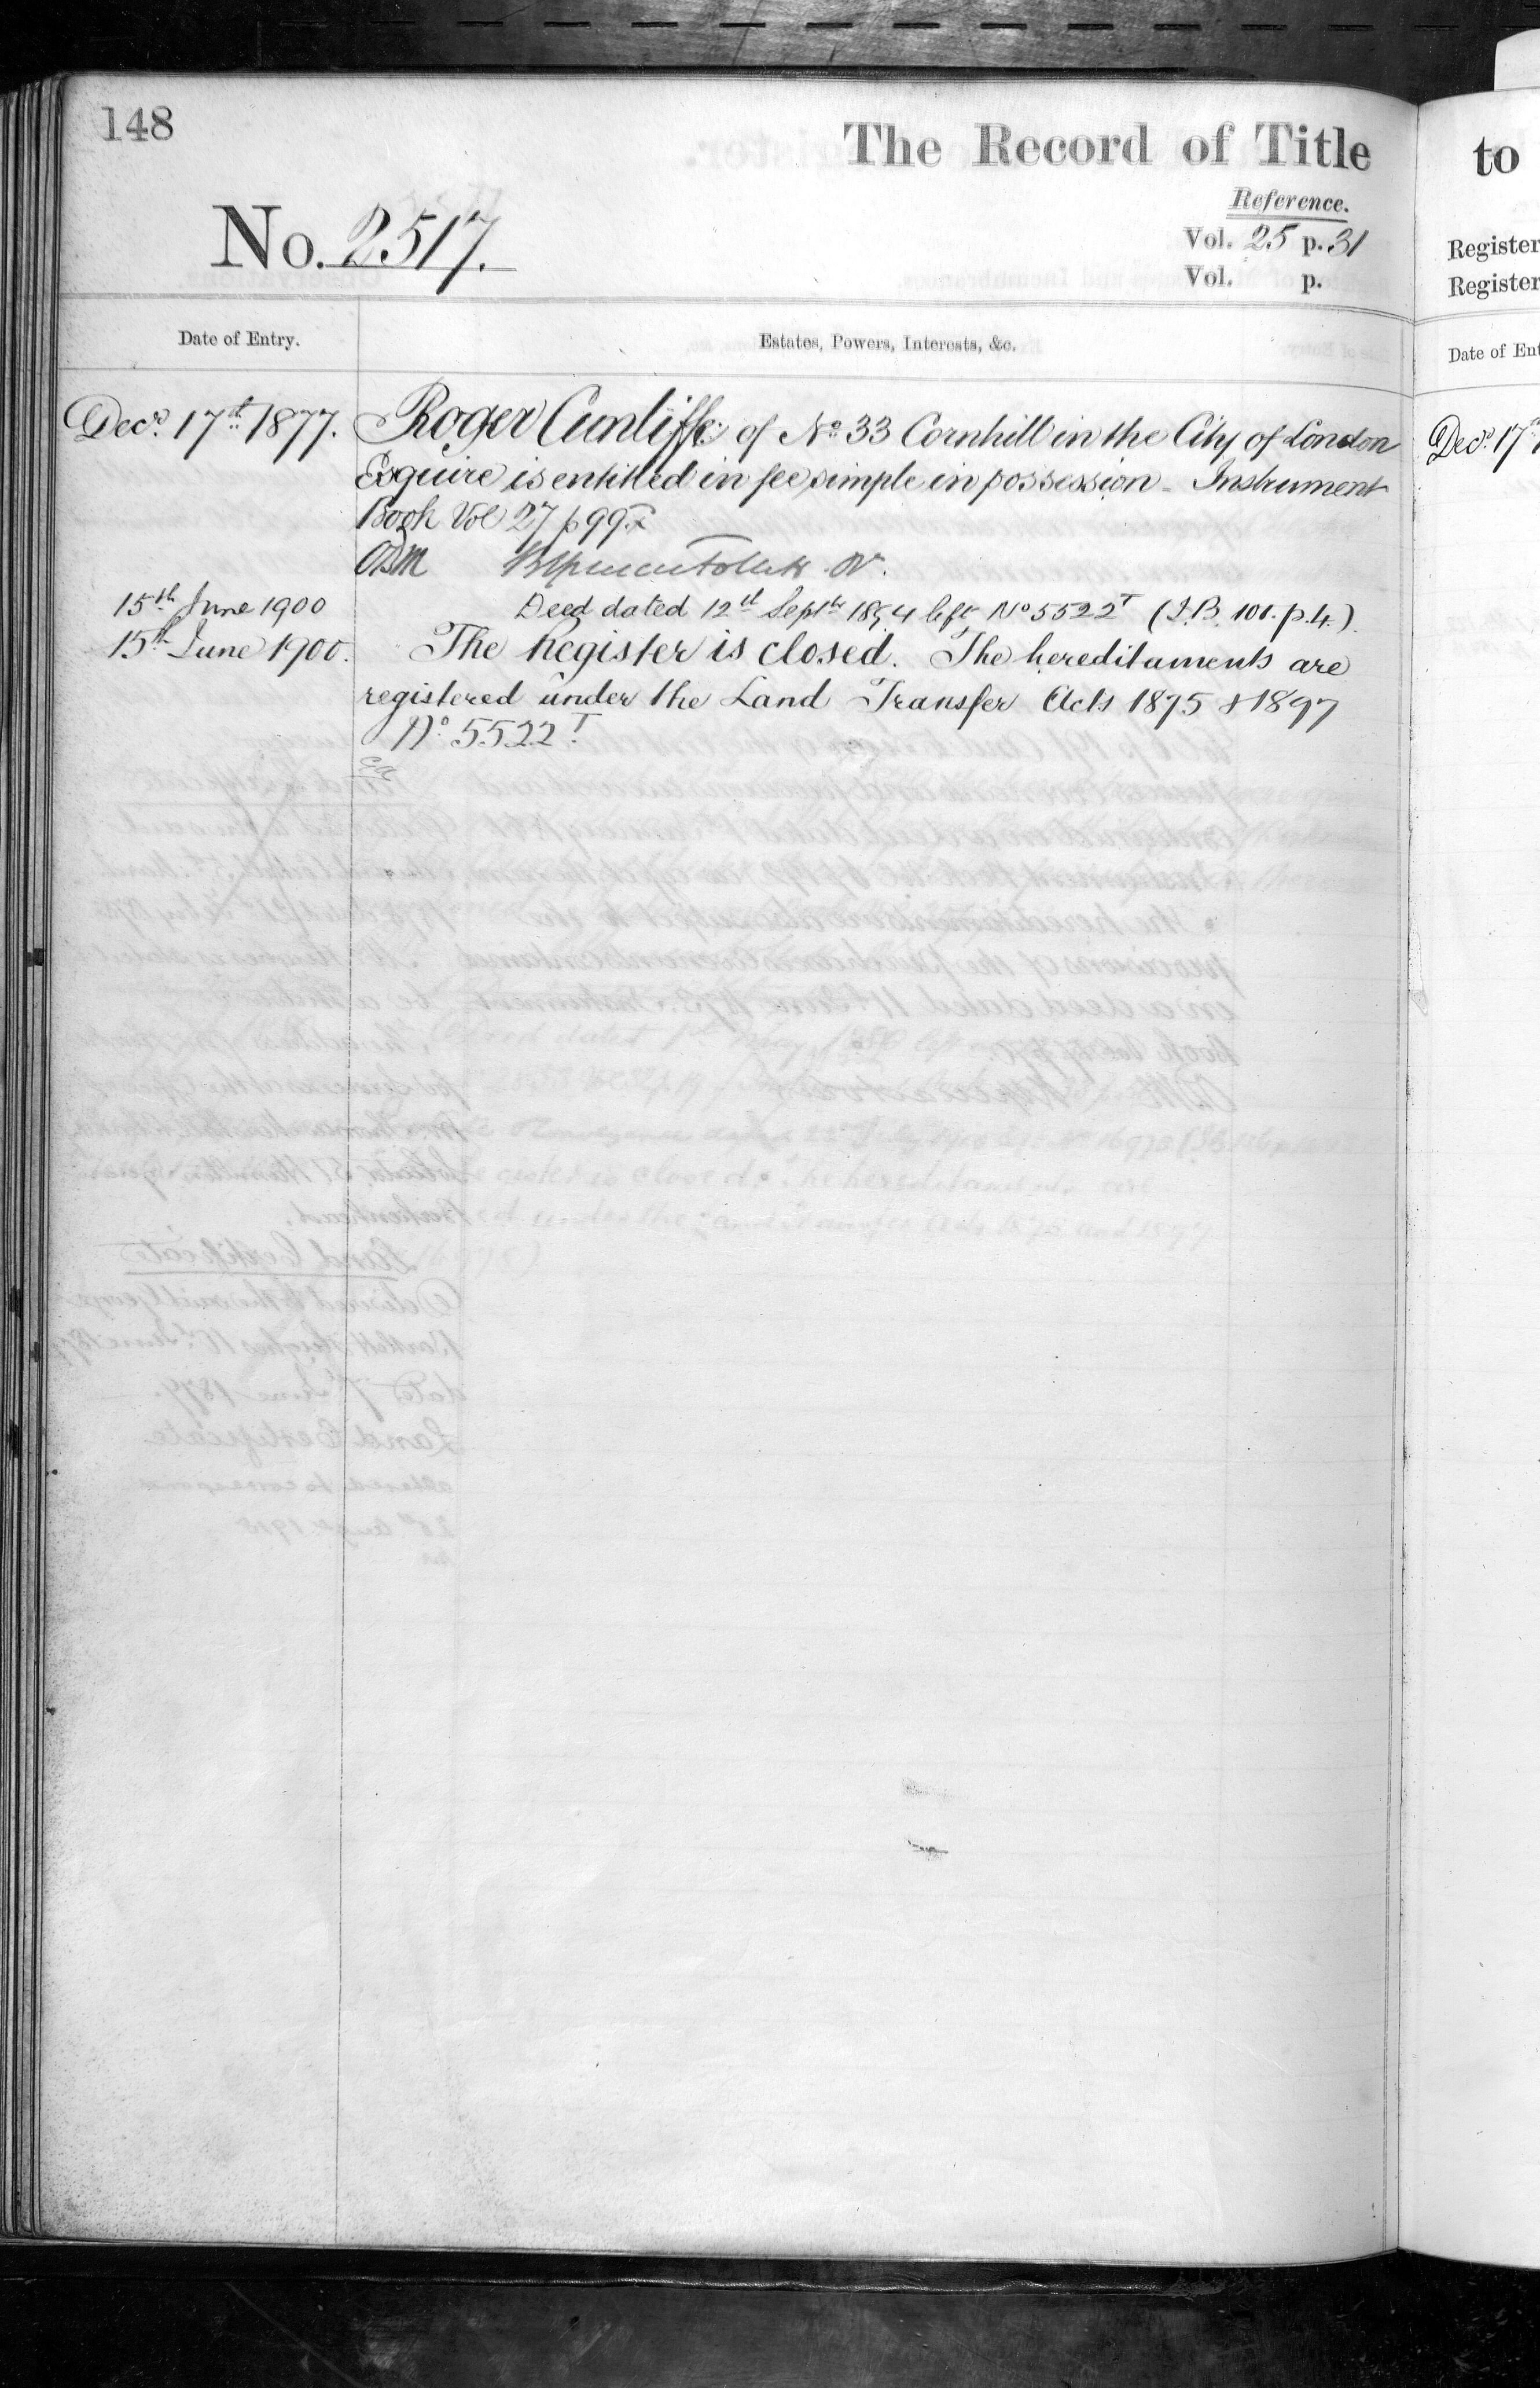 148
The Record of Title
to
Reference.
No. 2517.
Vol. 25 p. 31
Vol. p.
Register
Register
Date of Entry.
Estates, Powers, Interests, &c.
Date of Ent
Decr. 17th. 1877.
Roger Cunliffe of No. 33 Cornhill in the City of London
Decr. 17
Esquire is entitled in fee simple in possession - Instrument
Book Vol 27 p 99.
15th June 1900
Deed dated 12th Septr 1854 left No 5522T (I.B. 101. p. 4.)
15th June 1900.
The Register is closed. The hereditaments are
registered under the Land Transfer Acts 1875 & 1897
No. 5522T.